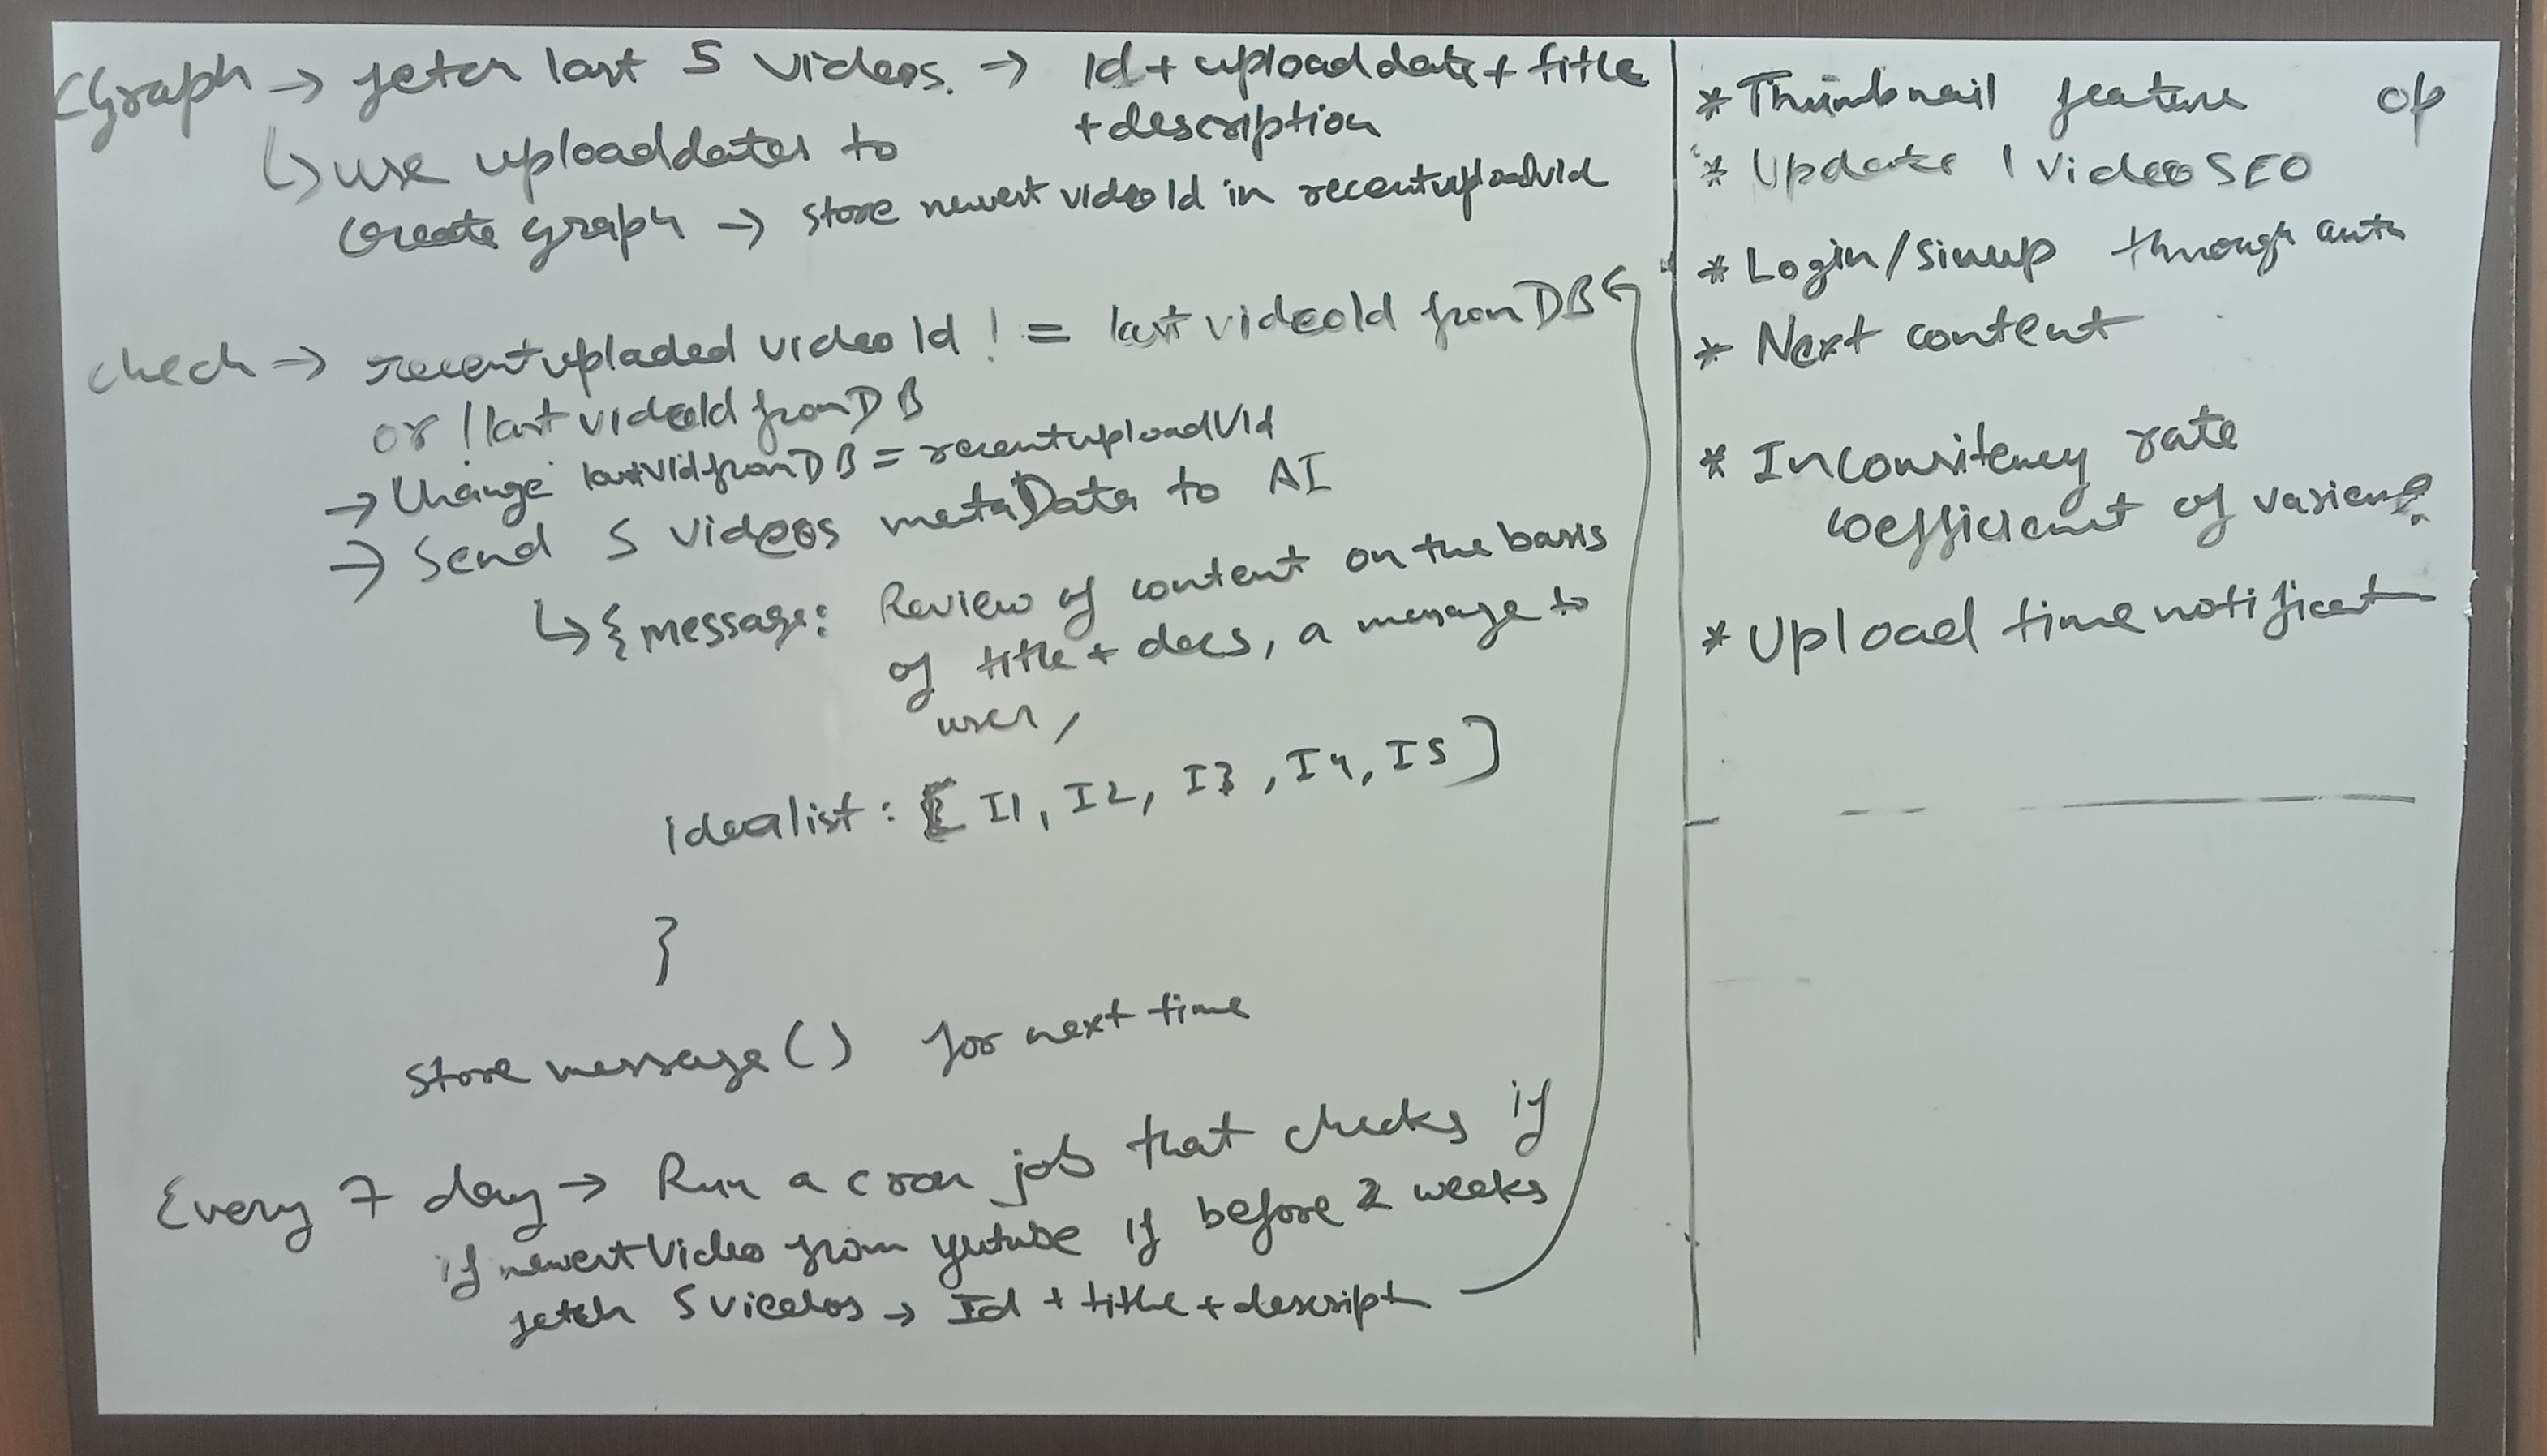 CGraph → fetch last 5 videos. → Id + uploaddate + title
+ description
↳ use uploaddates to
create graph → store newest videoId in recentuploadvid
check → recentupladed videoId != last videoId from DB
or !last videoId from DB
→ Change lastVidfromDB = recentuploadVId
→ Send 5 videos metaData to AI
↳ { message: Review of content on the basis
of title + decs, a message to
user,
idealist: [ I1, I2, I3, I4, I5 ]
}
store message() for next time
Every 7 day → Run a cron job that checks if
if newestVideo from yutube if before 2 weeks
fetch 5 videos → Id + title + descript
* Thumbnail feature of
* Update 1 video SEO
* Login/sinup through auth
* Next content
* Inconsitency rate
coefficient of varience
* Upload time notificat